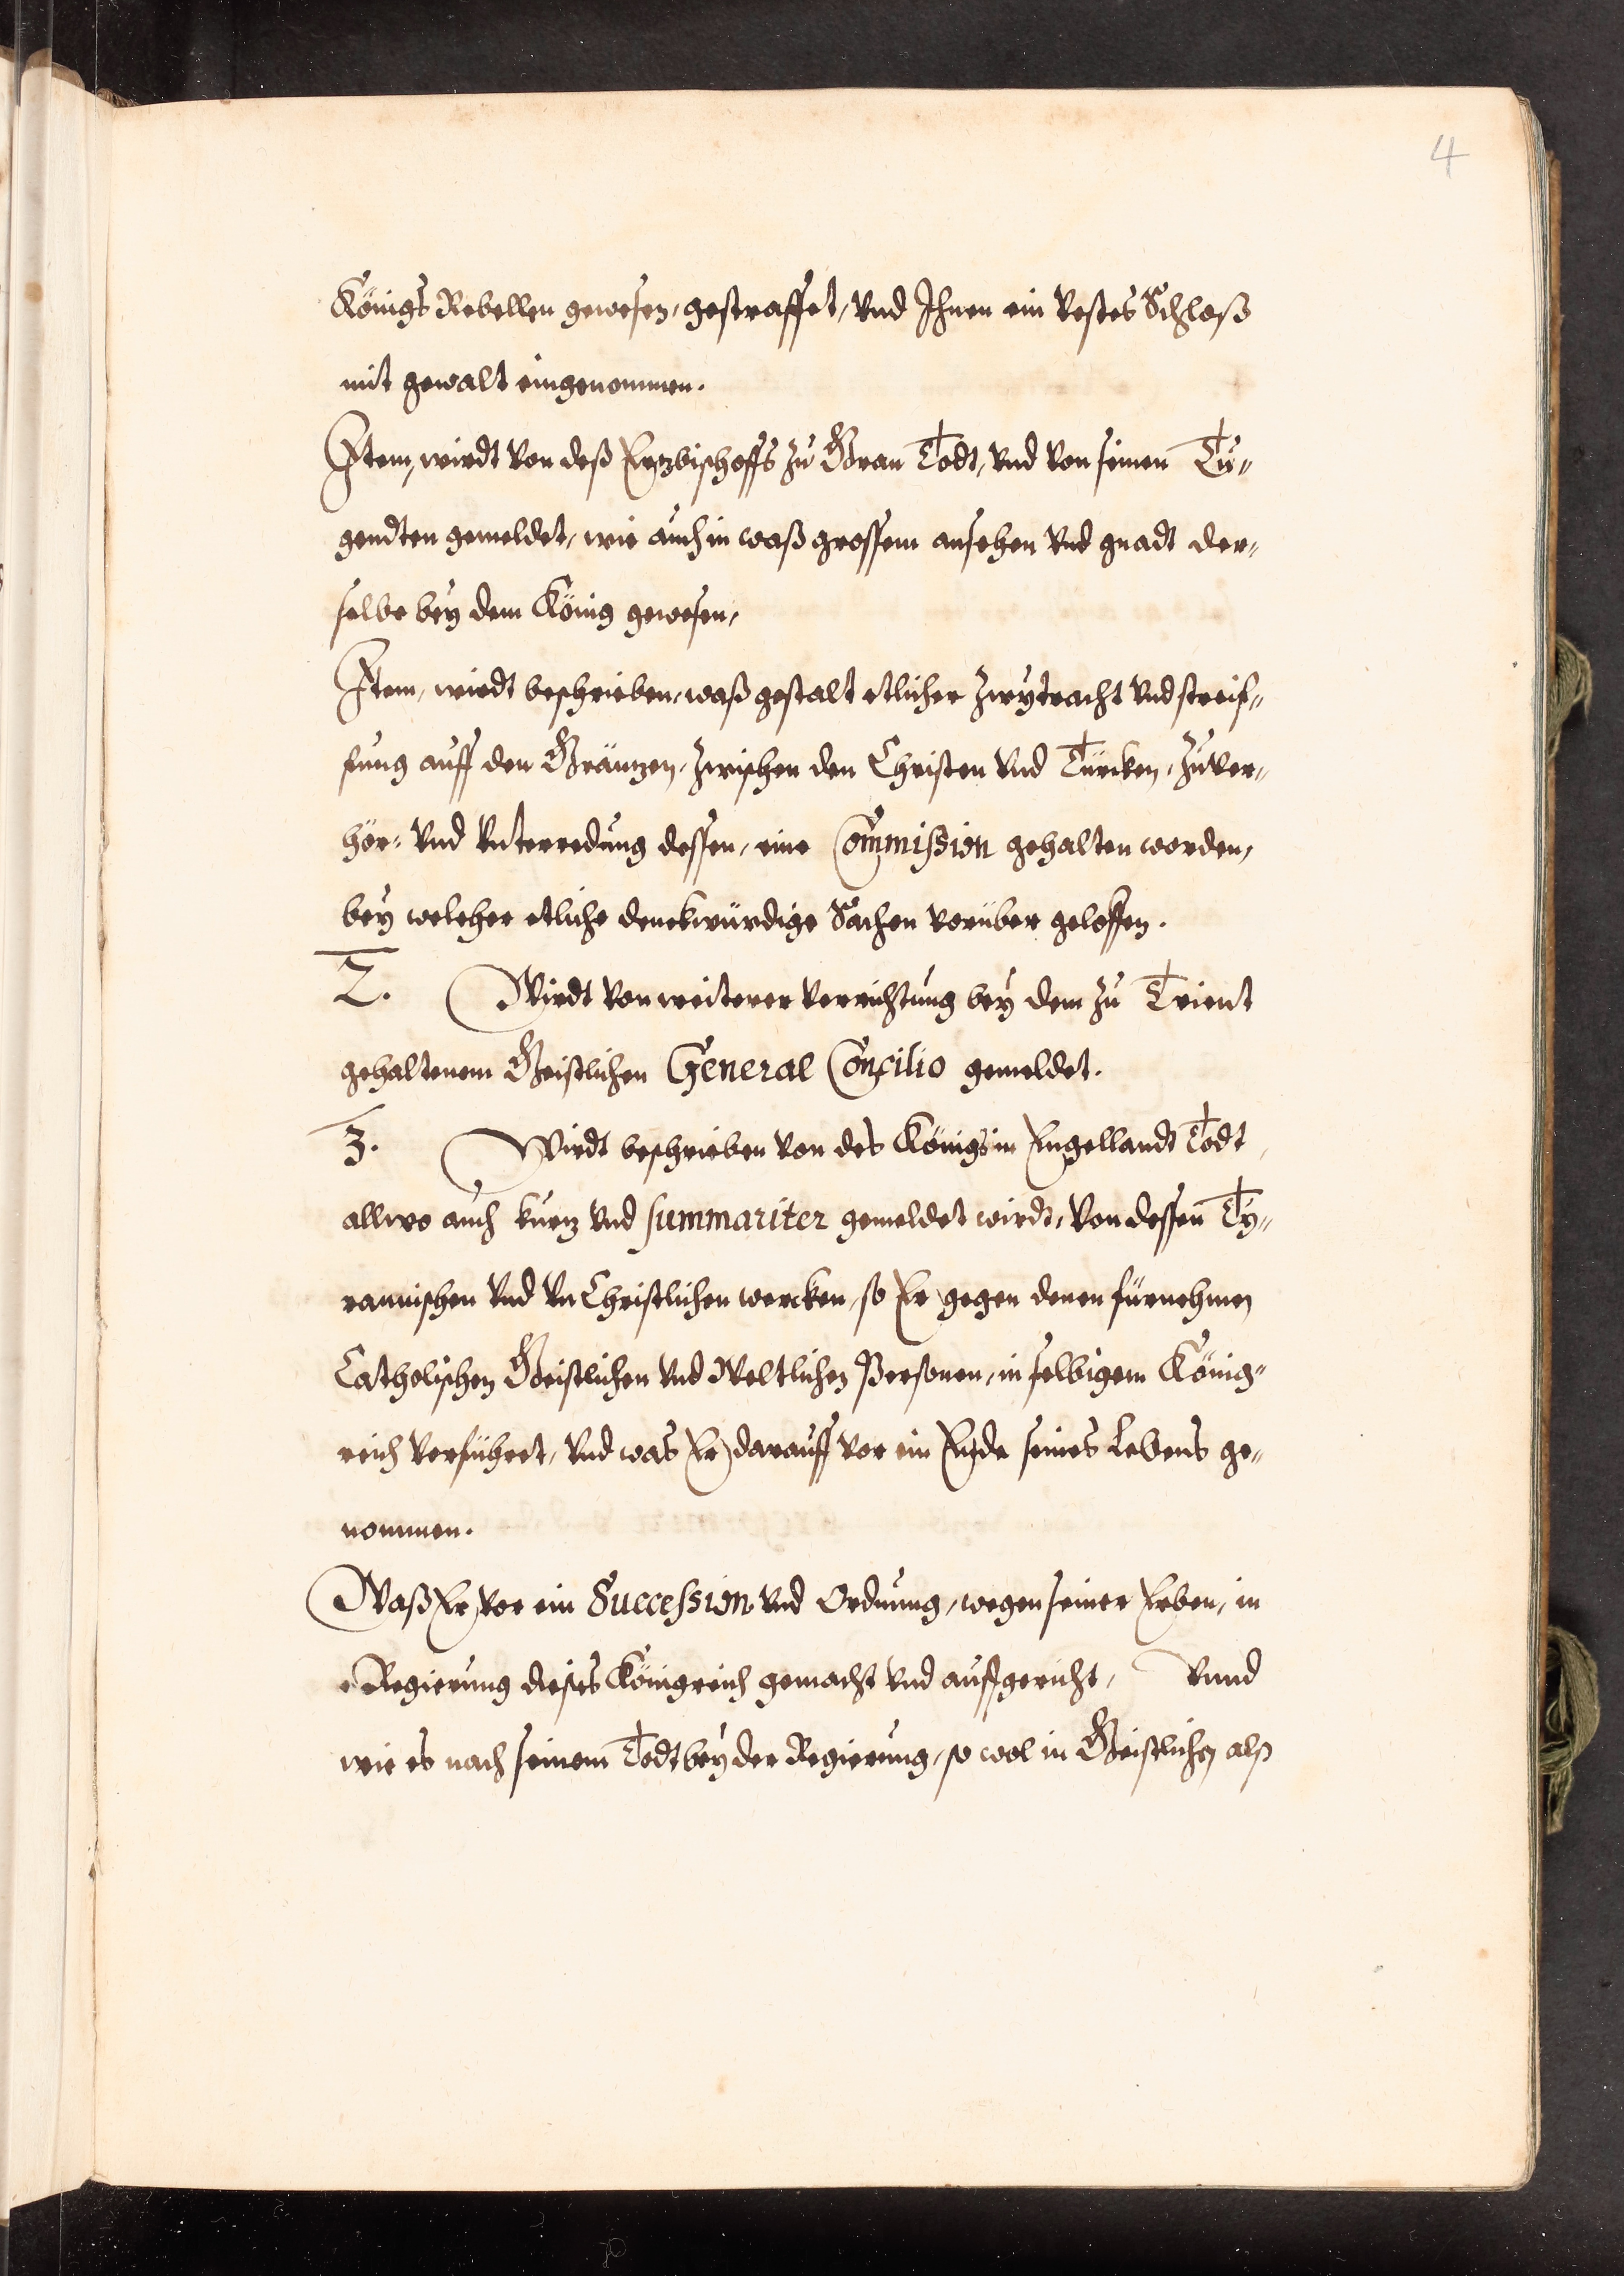 4
Königs Rebellen gewesen, gestraffet, vnd Ihnen ein vestes Schloß
mit gewalt eingenommen.
Item, wirdt von deß Ertzbischoffs zu Gran Todt, vnd von seinen Tu-
gendten gemeldet, wie auch in waß grossem ansehen vnd gnadt der-
selbe bey dem König gewesen,
Item, wirdt beschrieben, waß gestalt etlicher Zwytracht vnd streif-
fung auff den Gräntzen, zwischen den Christen vnd Türcken, zu ver-
hör- vnd vnterredung dessen, eine Commission gehalten worden,
bey welcher etliche denckwürdige Sachen vorüber geloffen.
2. Wirdt von weiterer verrichtung bey dem zu Trient
gehaltenem Geistlichen General Concilio gemeldet.
3. Wirdt beschrieben von des Königs in Engellandt Todt,
allwo auch kurtz vnd summariter gemeldet wirdt, von dessen Ty-
rannischen vnd vnChristlichen wercken, so Er gegen denen fürnehmen
Catholischen Geistlichen vnd Weltlichen Personen, in selbigem König-
reich verführet, vnd was Er darauff vor ein Ende seines Lebens ge-
nommen.
Waß Er vor ein Succession vnd Ordnung, wegen seiner Erben, in
Regierung dieses Königreich gemacht vnd auffgericht, vnnd
wie es nach seinem Todt bey der Regierung, so wol in Geistlichen alß